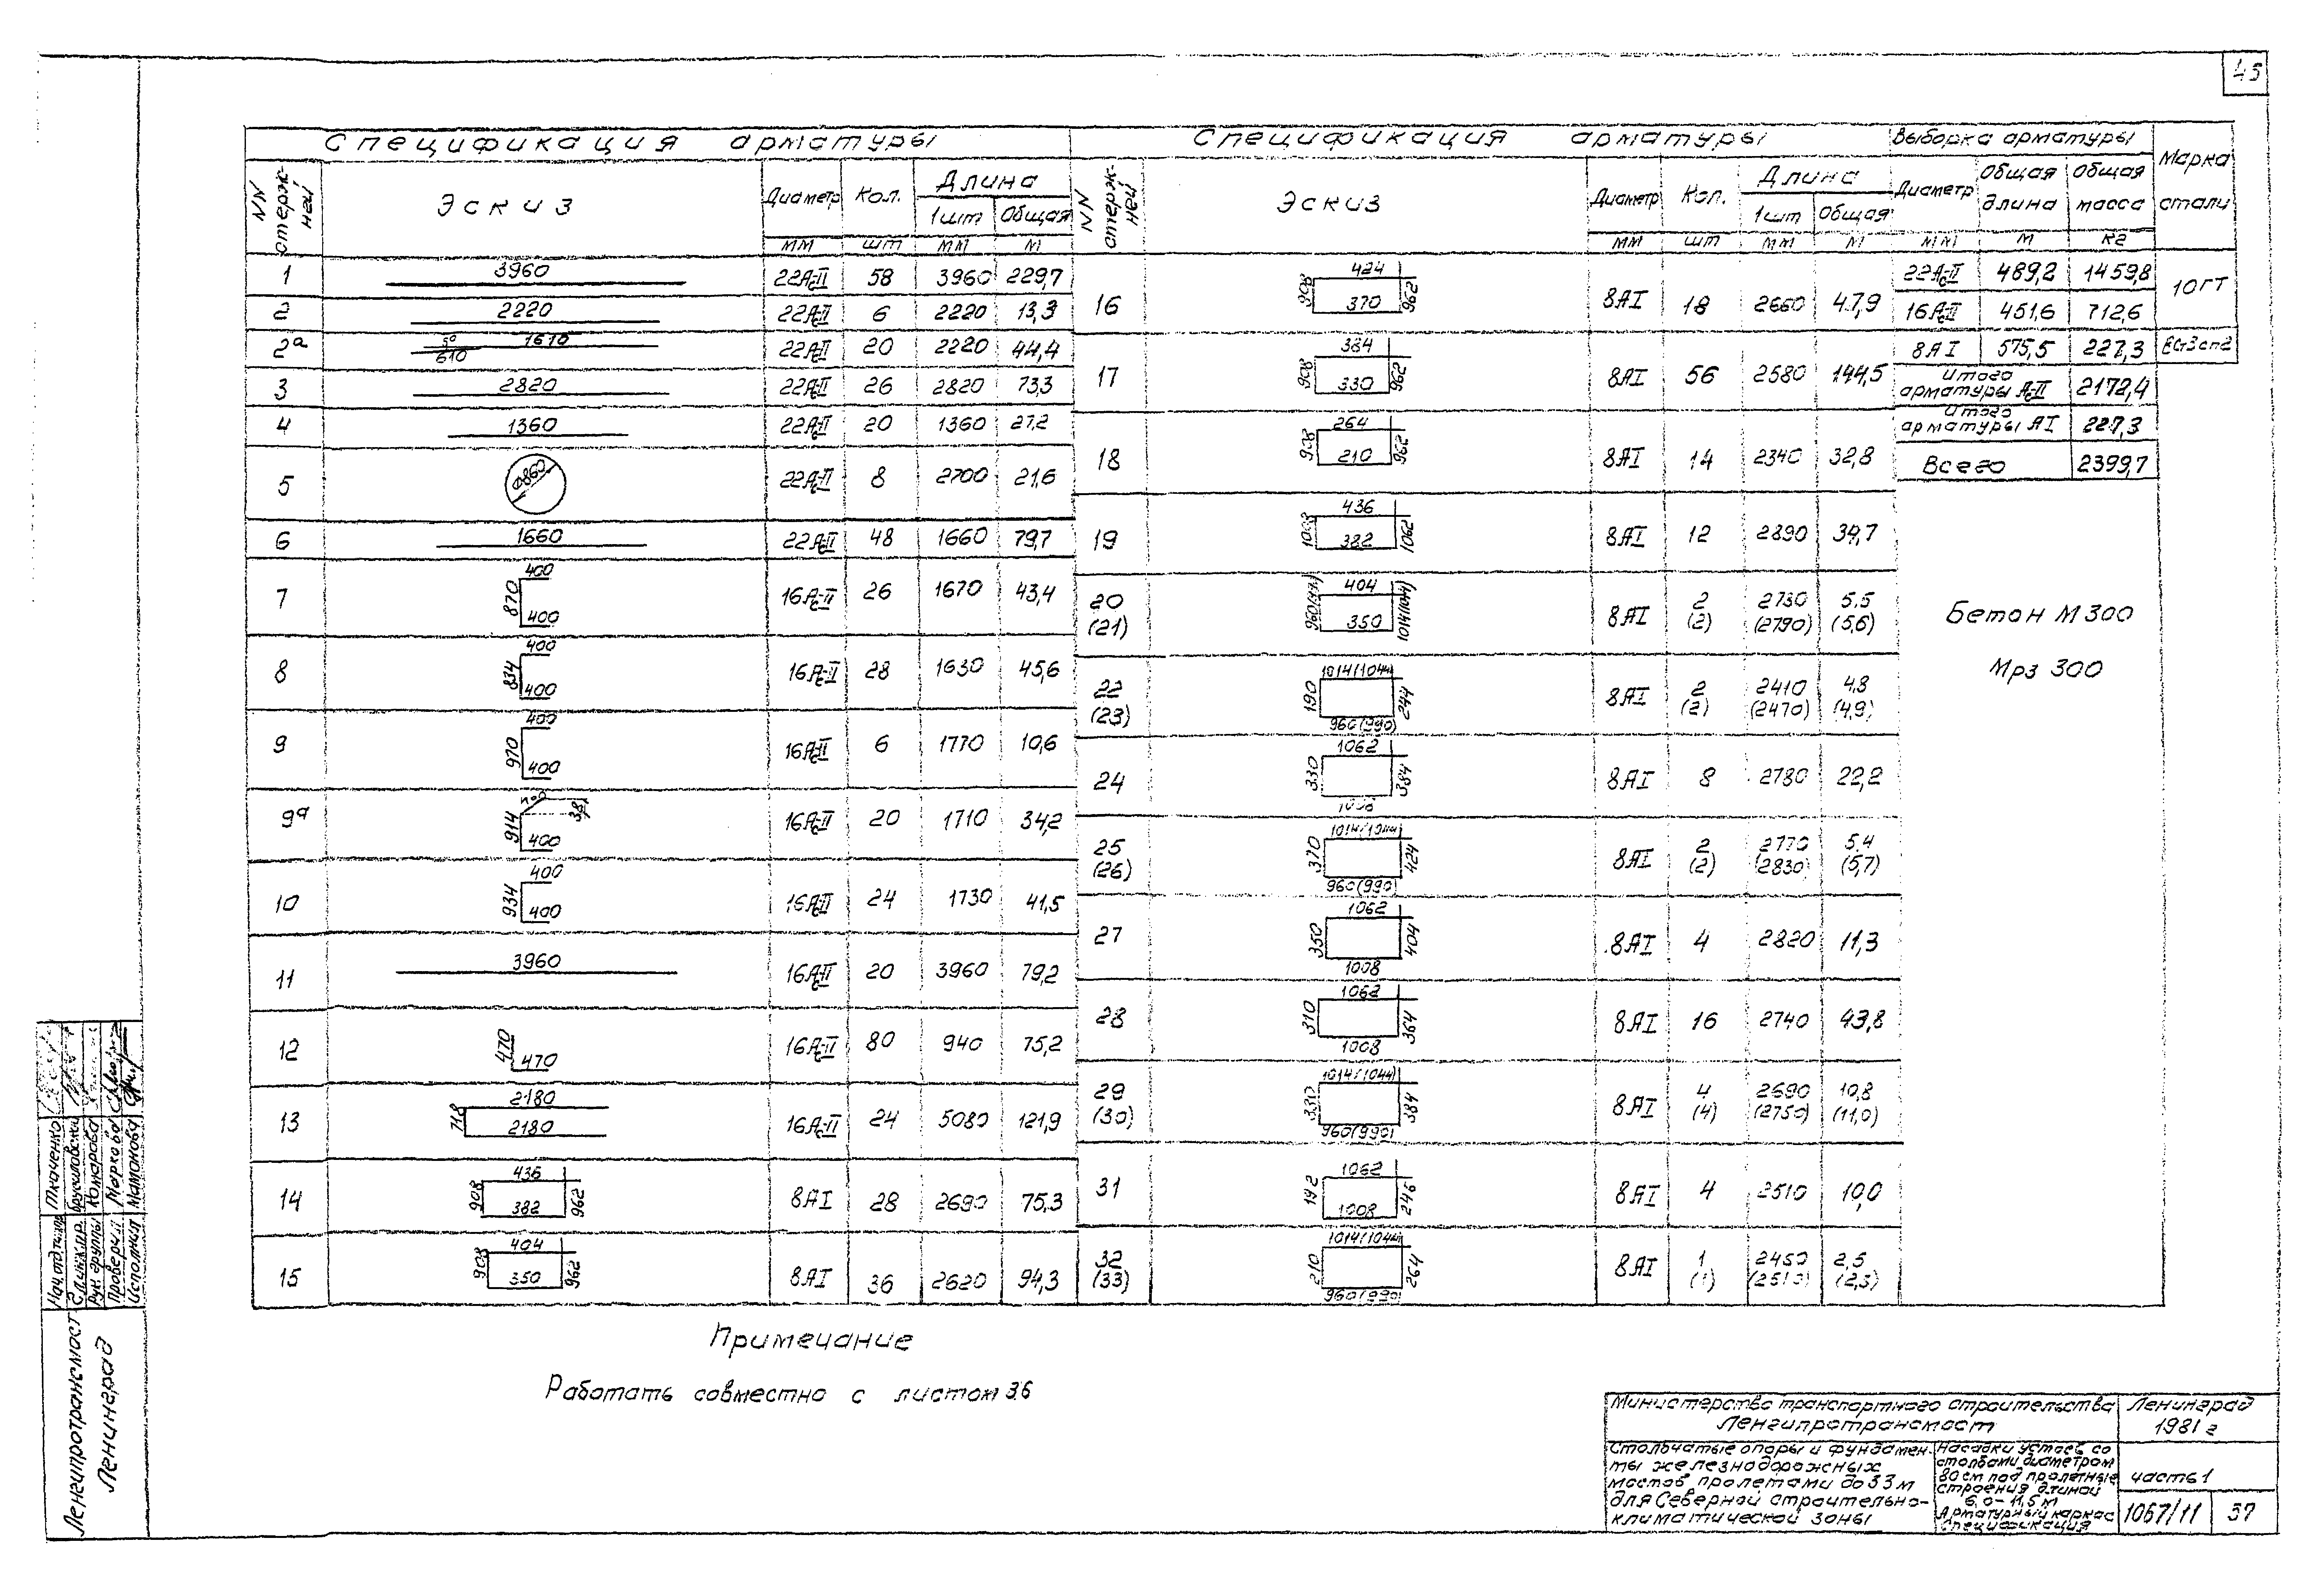 45
Спецификация арматуры
NN стержней Эскиз Диаметр Кол. Длина
1шт Общая
мм шт мм м
1 3960 22АсII 58 3960 229,7
2 2220 22АсII 6 2220 13,3
2а 610 1610 22АсII 20 2220 44,4
3 2820 22АсII 26 2820 73,3
4 1360 22АсII 20 1360 27,2
5 Ф860 22АсII 8 2700 21,6
6 1660 22АсII 48 1660 79,7
7 400 870 400 16АсII 26 1670 43,4
8 400 834 400 16АсII 28 1630 45,6
9 400 970 400 16АсII 6 1770 10,6
9а 914 400 16АсII 20 1710 34,2
10 400 934 400 16АсII 24 1730 41,5
11 3960 16АсII 20 3960 79,2
12 470 470 16АсII 80 940 75,2
13 2180 718 2180 16АсII 24 5080 121,9
14 436 908 382 962 8АI 28 2690 75,3
15 404 908 350 962 8АI 36 2620 94,3
Спецификация арматуры
NN стержней Эскиз Диаметр Кол. Длина
1шт Общая
мм шт мм м
16 424 908 370 962 8АI 18 2660 47,9
17 384 908 330 962 8АI 56 2580 144,5
18 264 908 210 962 8АI 14 2340 32,8
19 436 1008 382 1062 8АI 12 2890 34,7
20 404 960(990) 350 1014(1044) 8АI 2 2730 5,5
(21) (2) (2790) (5,6)
22 1014(1044) 190 244 960(990) 8АI 2 2410 4,8
(23) (2) (2470) (4,9)
24 1062 330 384 1008 8АI 8 2780 22,2
25 1014(1044) 370 424 960(990) 8АI 2 2770 5,4
(26) (2) (2830) (5,7)
27 1062 350 404 1008 8АI 4 2820 11,3
28 1062 310 364 1008 8АI 16 2740 43,8
29 1014(1044) 330 384 960(990) 8АI 4 2690 10,8
(30) (4) (2750) (11,0)
31 1062 192 246 1008 8АI 4 2510 10,0
32 1014(1044) 210 264 960(990) 8АI 1 2450 2,5
(33) (1) (2510) (2,5)
Выборка арматуры Марка стали
Диаметр Общая длина Общая масса
мм м кг
22АсII 489,2 1459,8 10ГТ
16АсII 451,6 712,6
8АI 575,5 227,3 ВСт3сп2
Итого арматуры АсII 2172,4
Итого арматуры АI 227,3
Всего 2399,7
Бетон М300
Мрз 300
Примечание
Работать совместно с листом 36
Министерство транспортного строительства
Ленгипротрансмост
Ленинград
1981г
Столбчатые опоры и фундамен-
ты железнодорожных
мостов пролетами до 33м
для Северной строительно-
климатической зоны
Насадки устоев со
столбами диаметром
80см под пролетные
строения длиной
6,0-11,5м
Арматурный каркас
Спецификация
часть 1
1067/11 37
Нач.отд.типр. Ткаченко
Гл.инж.пр. Брусиловский
Рук.группы Комарова
Проверил Маркова
Исполнил Мамонова
Ленгипротрансмост
Ленинград